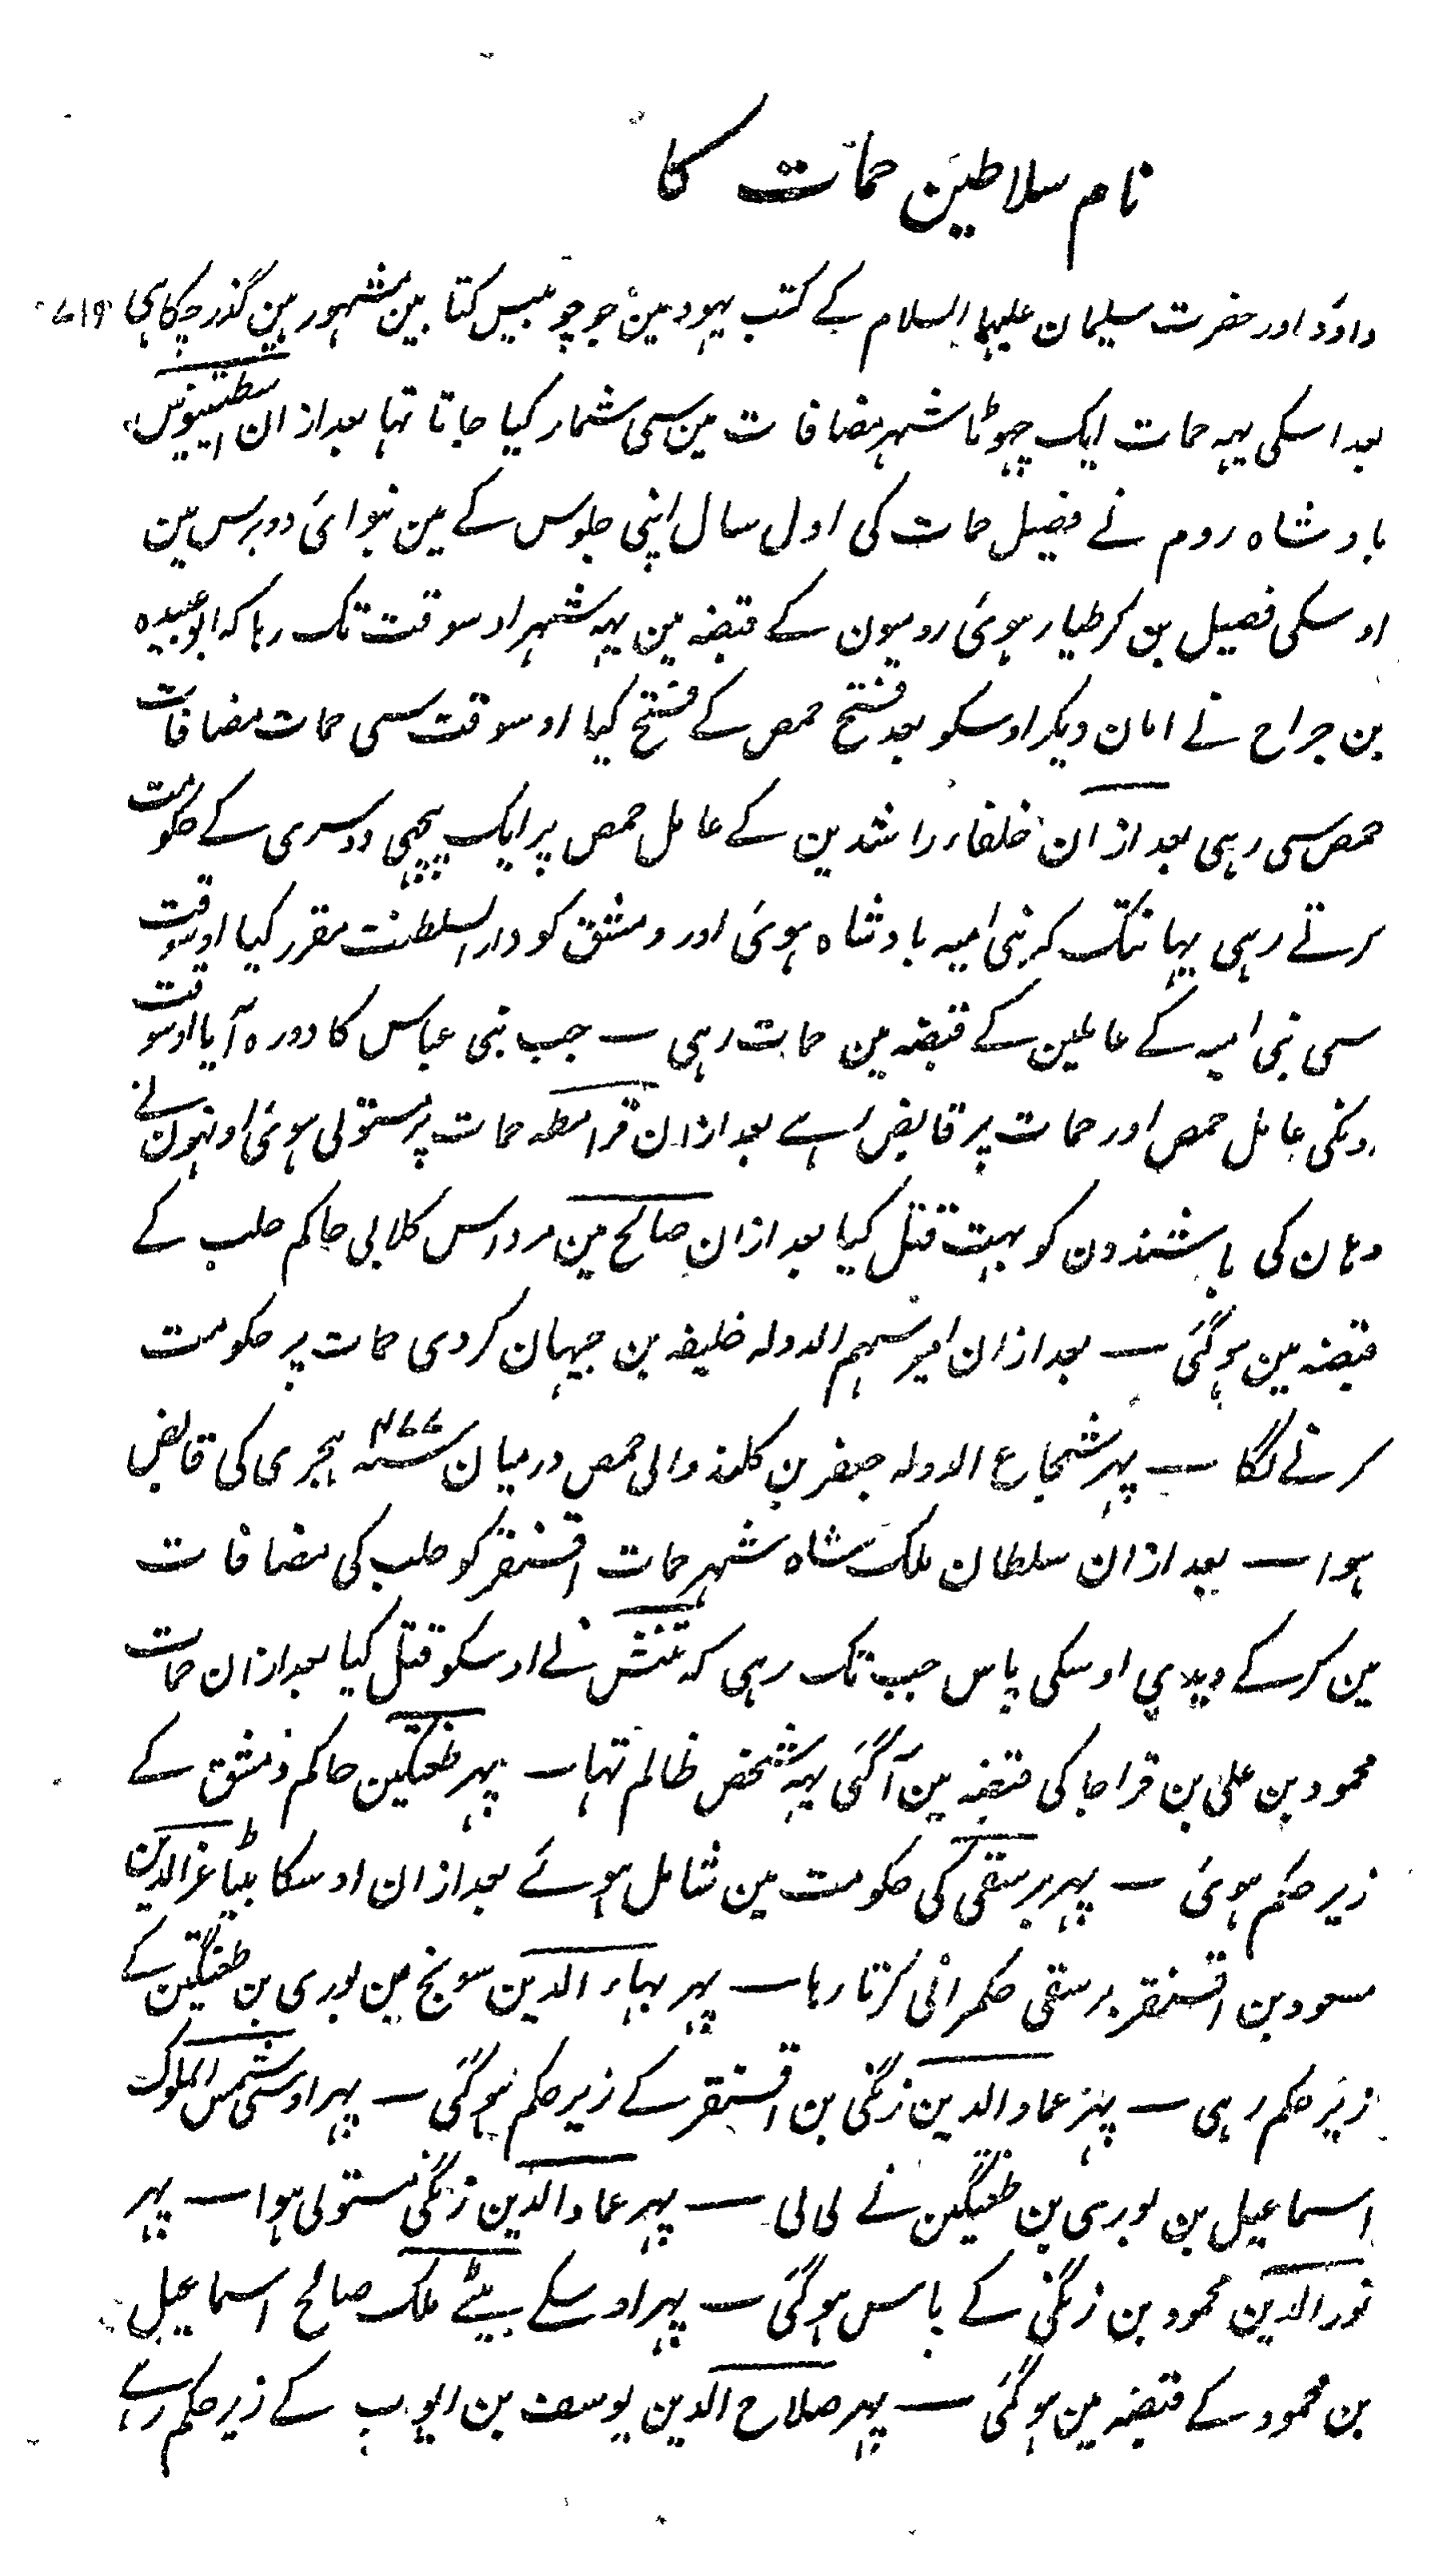 نام سلاطین حمات کا
داؤد اور حضرت سلیمان علیہما السلام کے کتب یہود مین جو چوبیس کتابین مشہور ہین گذر چکا ہی
بعد اسکی یہہ حمات ایک چھوٹا شہر مضافات مین سی شمار کیا جاتا تہا بعد ازان اسطینوس
بادشاہ روم نے فصیل حمات کی اول سال اپنی جلوس کے مین بنوائی دو برس مین
اوسکی فصیل بن کر طیار ہوئی رومیون کے قبضہ مین یہہ شہر اوسوقت تک رہا کہ ابو عبیدہ
بن جراح نے امان دیکر اوسکو بعد فتح حمص کے فتح کیا اوسوقت سی حمات مضافات
حمص سی رہی بعد ازان خلفاء راشدین کے عامل حمص پر ایک پیچہی دوسری کے حکومت
کرتے رہی یہانتک کہ بنی امیہ بادشاہ ہوئی اور دمشق کو دار السلطنت مقرر کیا اوسوقت
سی بنی امیہ کے عاملین کے قبضہ مین حمات رہی — جب بنی عباس کا دورہ آیا اوسوقت
اونکی عامل حمص اور حمات پر قابض رہے بعد ازان قرامطہ حمات پر مستولی ہوئی اونہون نے
وہان کی باشندون کو بہت قتل کیا بعد ازان صالح بن مرداس کلابی حاکم حلب کے
قبضہ مین ہوگئی — بعد ازان امیر سہم الدولہ خلیفہ بن جیہان کردی حمات پر حکومت
کرنے لگا — پہر شجاع الدولہ جعفر بن کلند والی حمص درمیان سنہ ۴۷۷ ہجری کی قابض
ہوا — بعد ازان سلطان ملک شاہ شہر حمات اقسنقر کو حلب کی مضافات
مین کرکے دیدی اوسکی پاس جب تک رہی کہ تتش نے اوسکو قتل کیا بعد ازان حمات
محمود بن علی بن قراجا کی قبضہ مین آگئی یہہ شخص ظالم تہا — پہر طغتکین حاکم دمشق کے
زیر حکم ہوئی — پہر برسقی کی حکومت مین شامل ہوئے بعد ازان اوسکا بیٹا عز الدین
مسعود بن اقسنقر برسقی حکمرانی کرتا رہا — پہر بہاء الدین سونج بن بوری بن طغتکین کے
زیر حکم رہی — پہر عماد الدین زنگی بن اقسنقر کے زیر حکم ہوگئی — پہر اوسسی شمس الملوک
اسماعیل بن بوری بن طغتکین نے لی لی — پہر عماد الدین زنگی مستولی ہوا — پہر
نور الدین محمود بن زنگی کے پاس ہوگئی — پہر اوسکے بیٹے ملک صالح اسماعیل
بن محمود کے قبضہ مین ہوگئی — پہر صلاح الدین یوسف بن ایوب کے زیر حکم رہے